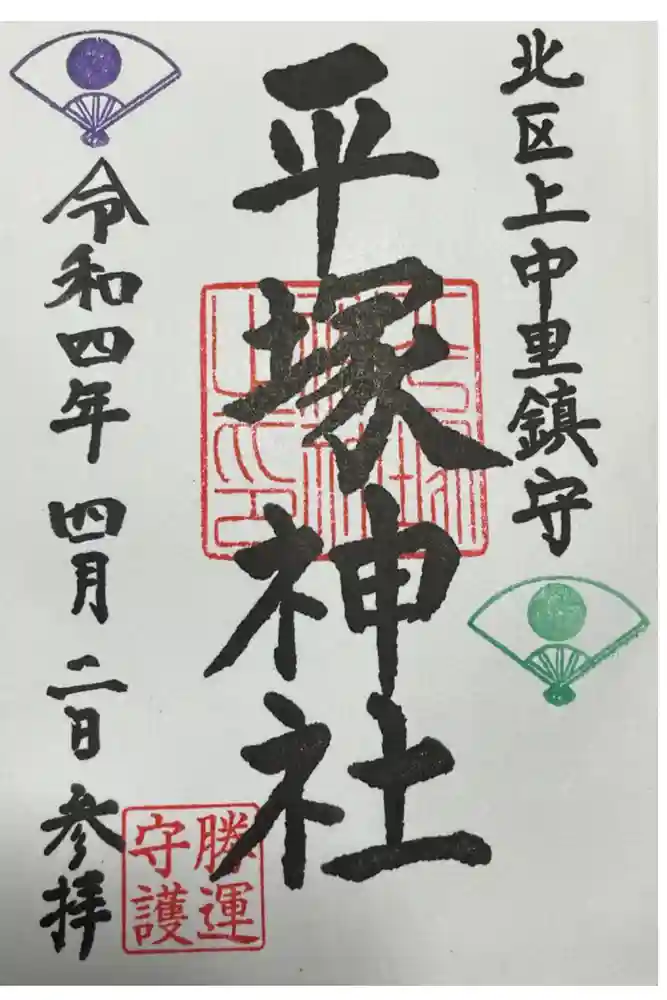 北区上中里鎮守
平塚神社
令和四年 四月 二日 参拝
勝運
守護